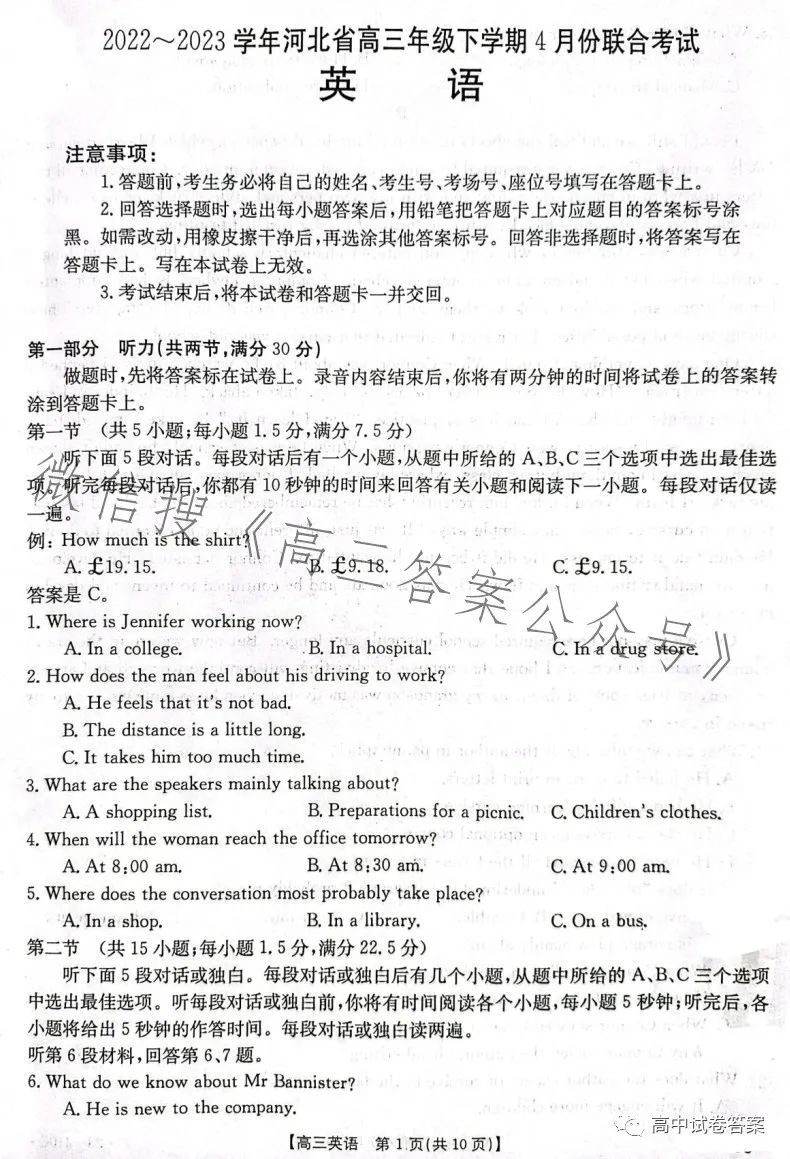 2022～2023学年河北省高三年级下学期4月份联合考试
英 语
注意事项：
1.答题前,考生务必将自己的姓名、考生号、考场号、座位号填写在答题卡上。
2.回答选择题时,选出每小题答案后,用铅笔把答题卡上对应题目的答案标号涂
黑。如需改动,用橡皮擦干净后,再选涂其他答案标号。回答非选择题时,将答案写在
答题卡上。写在本试卷上无效。
3.考试结束后,将本试卷和答题卡一并交回。
第一部分 听力(共两节,满分30分)
做题时,先将答案标在试卷上。录音内容结束后,你将有两分钟的时间将试卷上的答案转
涂到答题卡上。
第一节 (共5小题;每小题1.5分,满分7.5分)
听下面5段对话。每段对话后有一个小题,从题中所给的A、B、C三个选项中选出最佳选
项。听完每段对话后,你都有10秒钟的时间来回答有关小题和阅读下一小题。每段对话仅读
一遍。
例: How much is the shirt?
A. £19.15. B. £9.18. C. £9.15.
答案是C。
1. Where is Jennifer working now?
A. In a college. B. In a hospital. C. In a drug store.
2. How does the man feel about his driving to work?
A. He feels that it's not bad.
B. The distance is a little long.
C. It takes him too much time.
3. What are the speakers mainly talking about?
A. A shopping list. B. Preparations for a picnic. C. Children's clothes.
4. When will the woman reach the office tomorrow?
A. At 8:00 am. B. At 8:30 am. C. At 9:00 am.
5. Where does the conversation most probably take place?
A. In a shop. B. In a library. C. On a bus.
第二节 (共15小题;每小题1.5分,满分22.5分)
听下面5段对话或独白。每段对话或独白后有几个小题,从题中所给的A、B、C三个选项
中选出最佳选项。听每段对话或独白前,你将有时间阅读各个小题,每小题5秒钟;听完后,各
小题将给出5秒钟的作答时间。每段对话或独白读两遍。
听第6段材料,回答第6、7题。
6. What do we know about Mr Bannister?
A. He is new to the company.
【高三英语 第1页(共10页)】
微信搜《高三答案公众号》
高中试卷答案